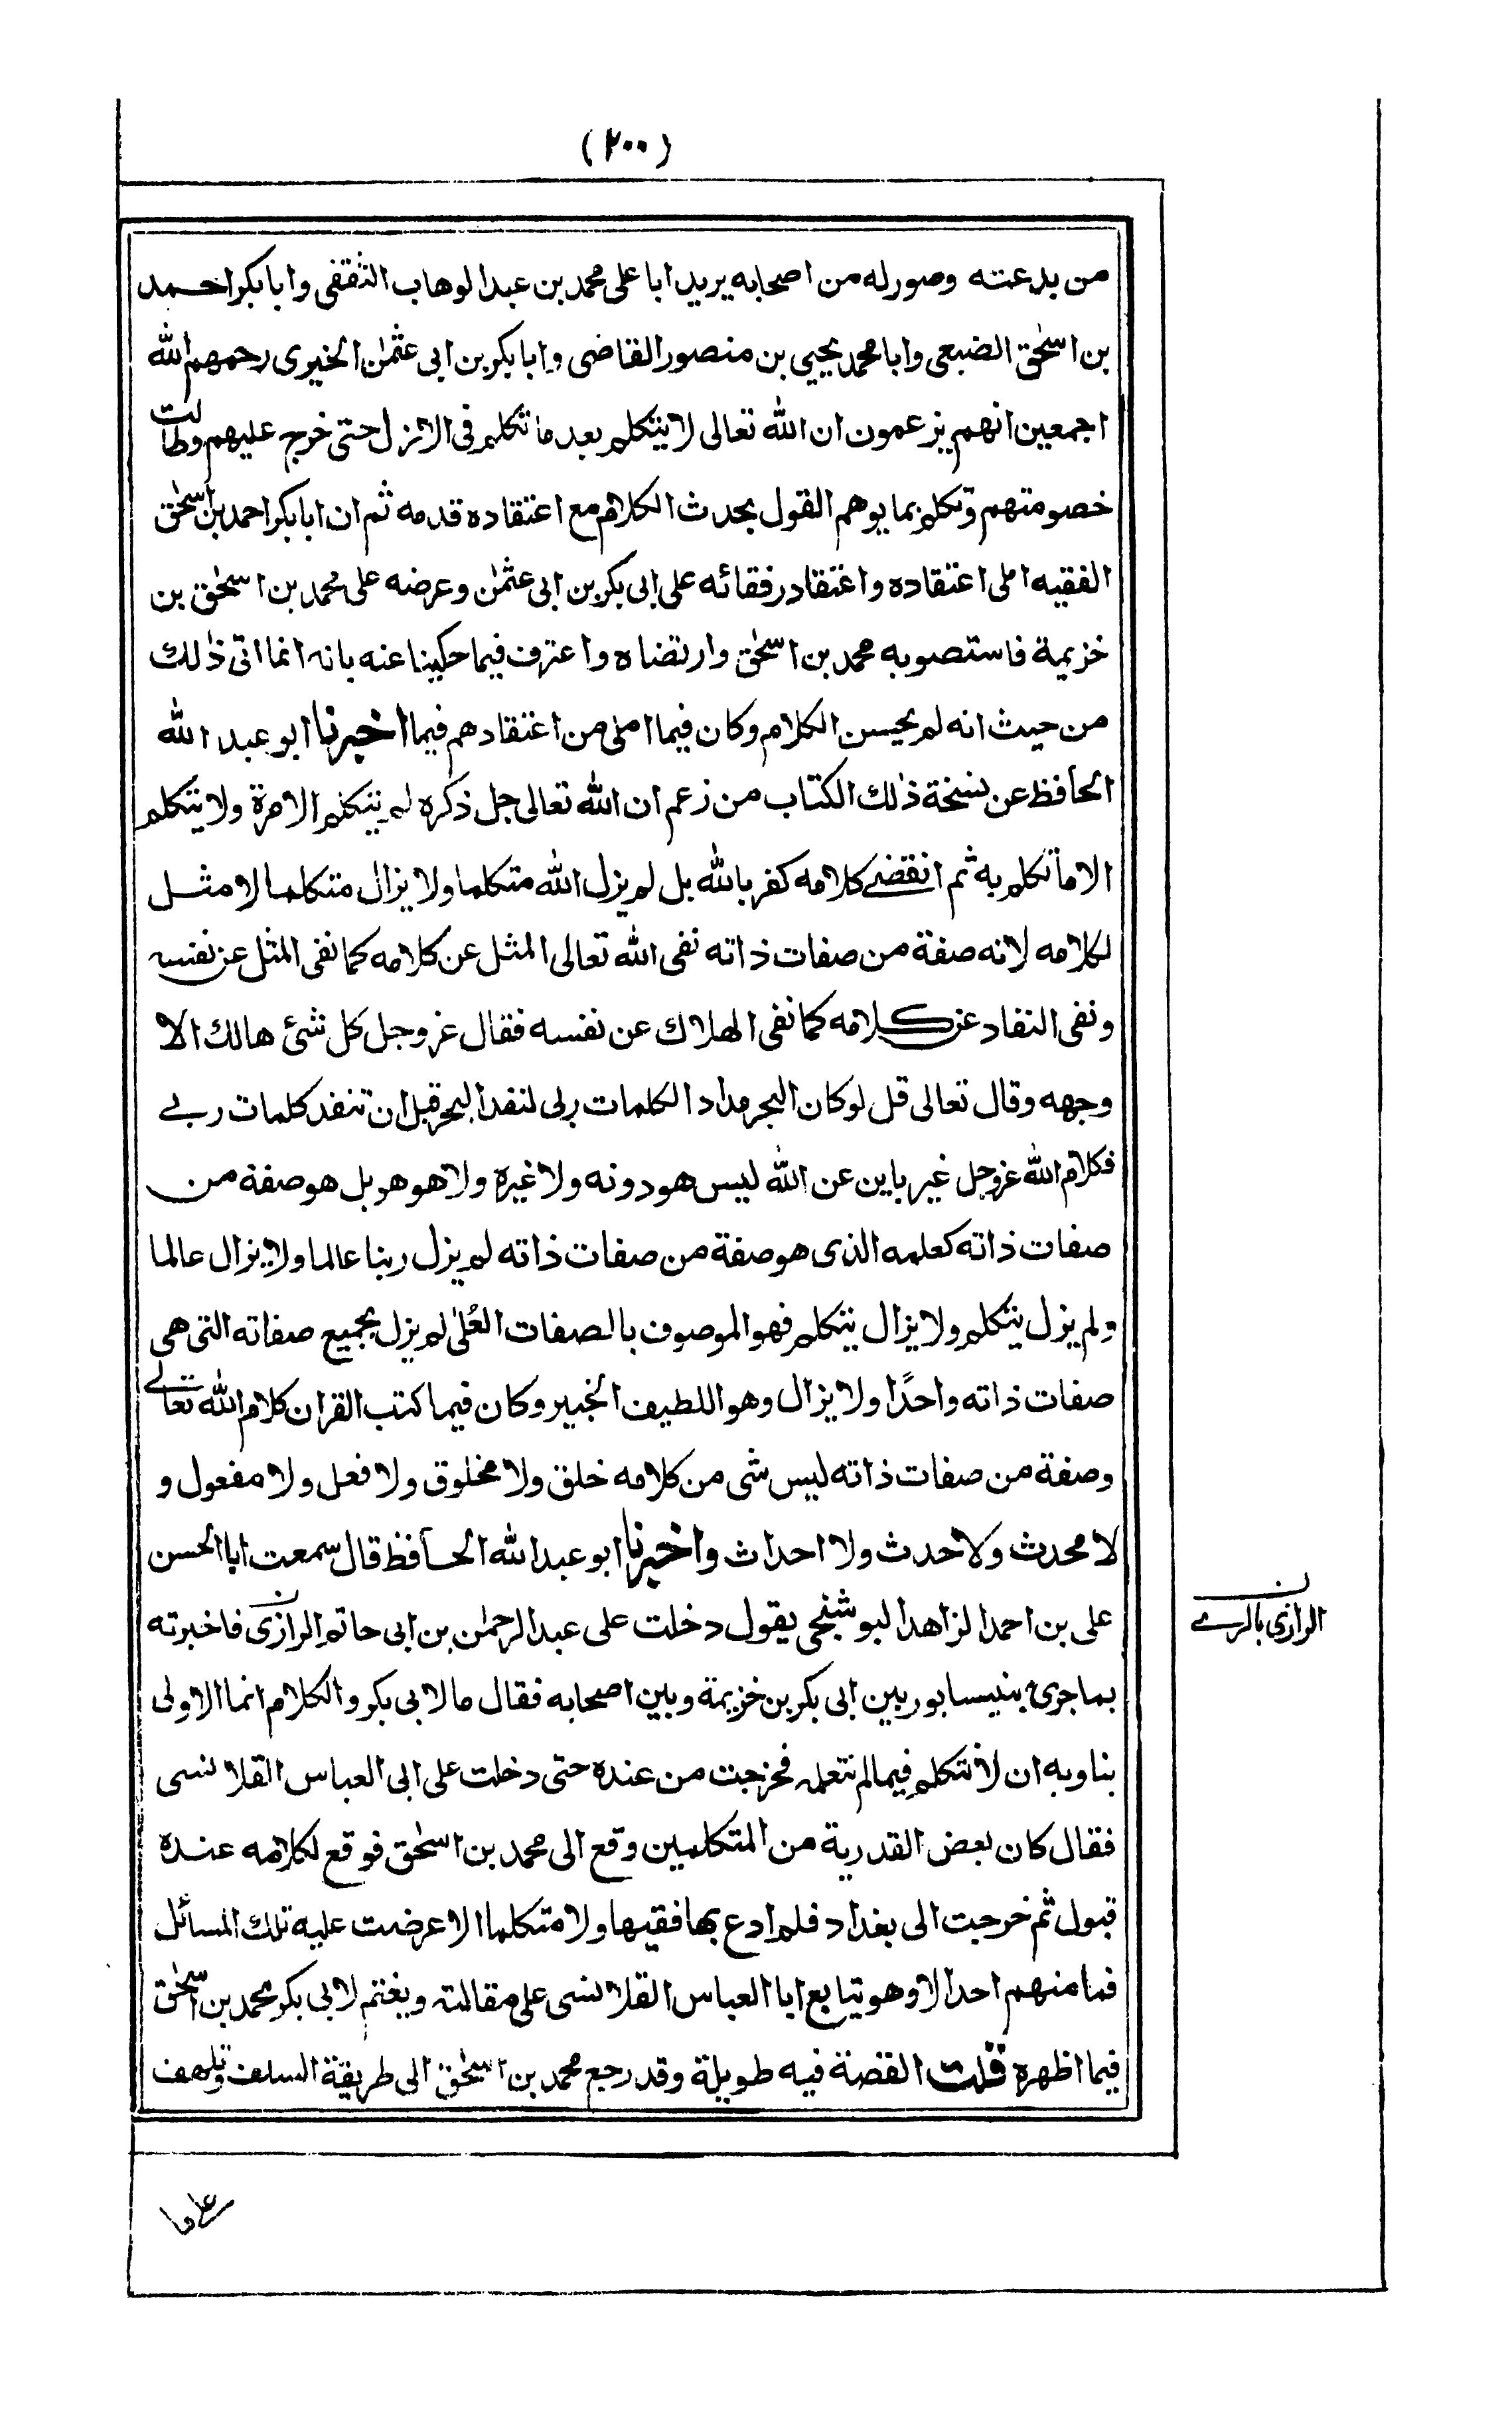 (٢٠٠)
من بدعته وصور له من اصحابه يريد ابا على محمد بن عبد الوهاب الثقفى وابا بكر احمد
بن اسحٰق الضبعى وابا محمد يحيى بن منصور القاضى وابا بكر بن ابى عثمٰن الخيرى رحمهم الله
اجمعين انهم يزعمون ان الله تعالى لا يتكلم بعد ما تكلم فى الازل حتى خرج عليهم وطالت
خصومتهم وتكلم بما يوهم القول بحدث الكلام مع اعتقاده قدمه ثم ان ابا بكر احمد بن اسحٰق
الفقيه املى اعتقاده واعتقاد رفقائه على ابى بكر بن ابى عثمٰن وعرضه على محمد بن اسحٰق بن
خزيمة فاستصوبه محمد بن اسحٰق وارتضاه واعترف فيما حكينا عنه بانه انما اتى ذٰلك
من حيث انه لم يحسن الكلام وكان فيما املى من اعتقادهم فيما اخبرنا ابو عبد الله
الحافظ عن نسخة ذٰلك الكتاب من زعم ان الله تعالى جل ذكره لم يتكلم الا مرة ولا يتكلم
الا ما تكلم به ثم انقضے كلامه كفر بالله بل لم يزل الله متكلما ولا يزال متكلما لا مثل
لكلامه لانه صفة من صفات ذاته نفى الله تعالى المثل عن كلامه كما نفى المثل عن نفسه
ونفى النفاد عن كلامه كما نفى الهلاك عن نفسه فقال عز وجل كل شئ هالك الا
وجهه وقال تعالى قل لو كان البحر مدادا لكلمات ربى لنفد البحر قبل ان تنفد كلمات ربے
فكلام الله عز وجل غير باين عن الله ليس هو دونه ولا غيره ولا هو هو بل هو صفة من
صفات ذاته كعلمه الذى هو صفة من صفات ذاته لم يزل ربنا عالما ولا يزال عالما
ولم يزل يتكلم ولا يزال يتكلم فهو الموصوف بالصفات العُلىٰ لم يزل بجميع صفاته التى هى
صفات ذاته واحدًا ولا يزال وهو اللطيف الخبير وكان فيما كتب القران كلام الله تعالے
وصفة من صفات ذاته ليس شى من كلامه خلق ولا مخلوق ولا فعل ولا مفعول و
لا محدث ولا حدث ولا احداث واخبرنا ابو عبد الله الحافظ قال سمعت ابا الحسن
على بن احمد الزاهد البوشنجى يقول دخلت على عبد الرحمٰن بن ابى حاتم الرازى فاخبرته
ن
الرازى بالرے
بما جرى بنيسابور بين ابى بكر بن خزيمة وبين اصحابه فقال ما لابى بكر والكلام انما الاولى
بنا وبه ان لا نتكلم فيما لم نتعلمه فخرجت من عنده حتى دخلت على ابى العباس القلانسى
فقال كان بعض القدرية من المتكلمين وقع الى محمد بن اسحٰق فوقع لكلامه عنده
قبول ثم خرجت الى بغداد فلم ادع بها فقيها ولا متكلما الا عرضت عليه تلك المسائل
فما منهم احد الا وهو يتابع ابا العباس القلانسى على مقالته ويغتم لابى بكر محمد بن اسحٰق
فيما اظهره قلت القصة فيه طويلة وقد رجع محمد بن اسحٰق الى طريقة السلف وتلهف
على ما